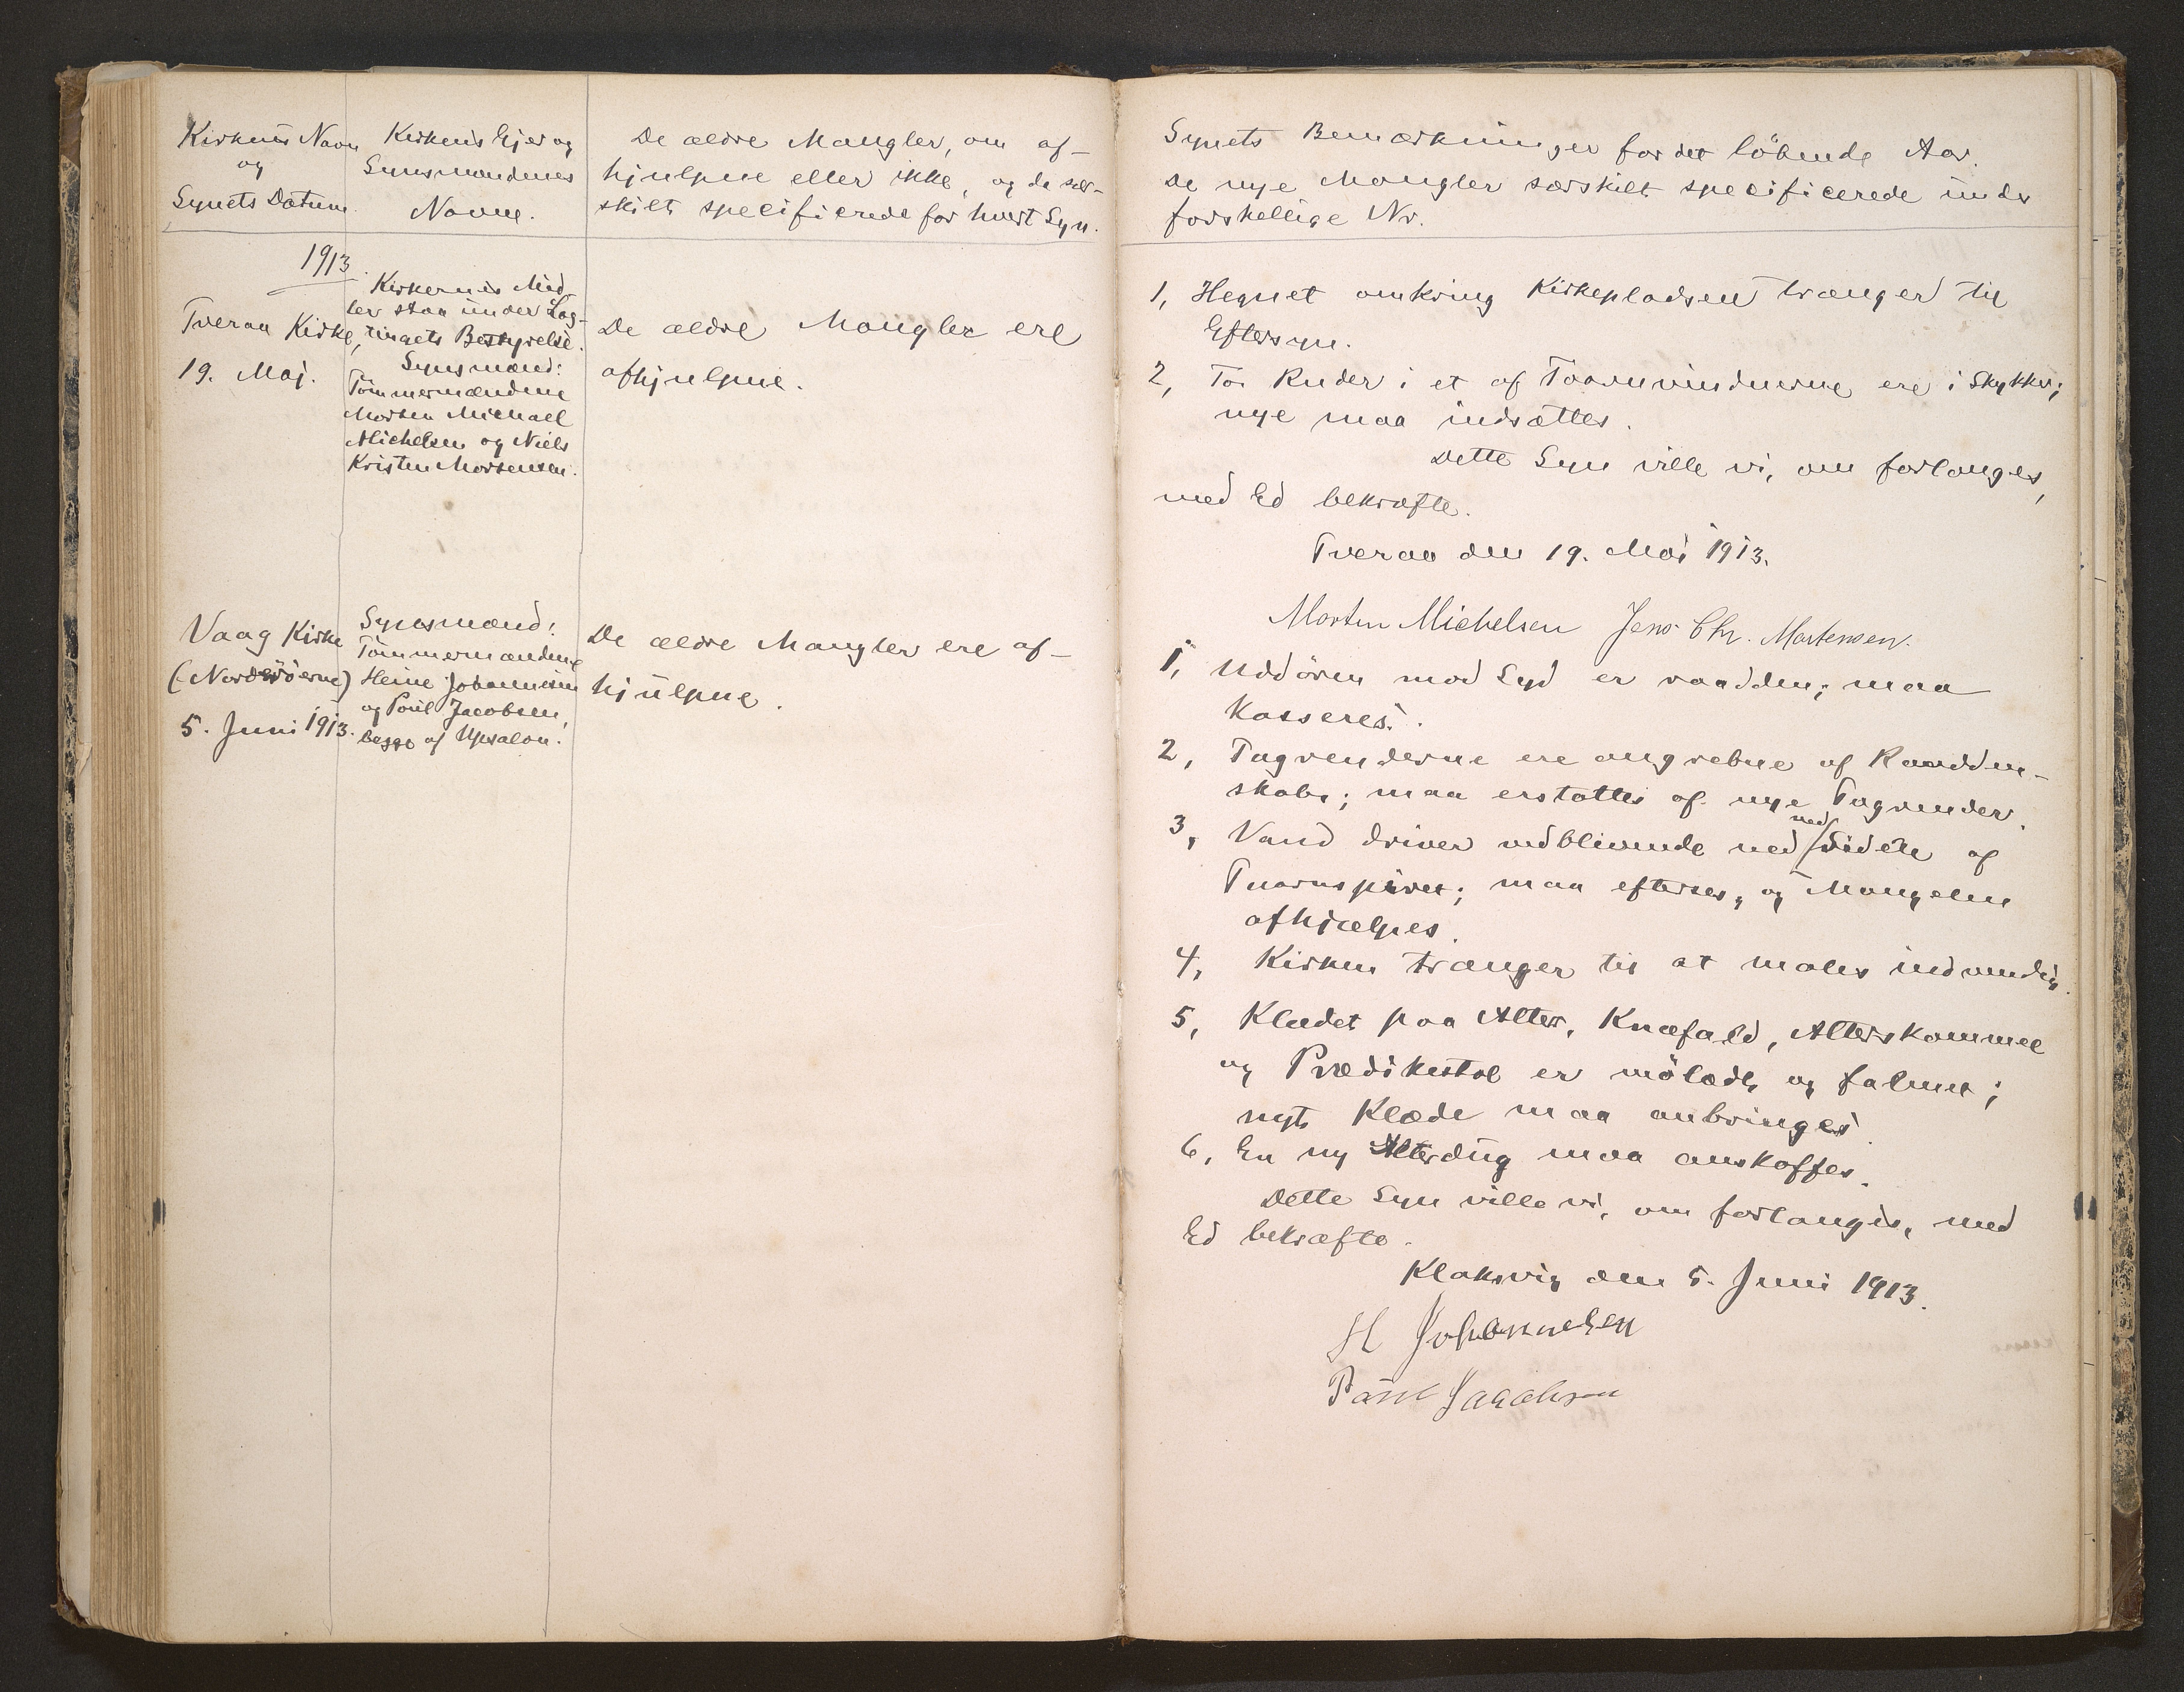 Kirkens Navn
og
Synets Datum.
Kirkens Ejer og
Synsmændenes
Navne.
De ældre Mangler, om af-
hjulpne eller ikke, og da sær-
skilt specificerede for hvert Syn.
1913.
Tveraa Kirke,
19. Maj.
Kirkernes Mid-
ler staa under Lag-
tingets Bestyrelse.
Synsmænd:
Tömmermændene
Morten Michael
Michelsen og Niels
Kristen Mortensen.
De ældre Mangler ere
afhjulpne.
Vaag Kirke
(Norderöerne)
5. Juni 1913.
Synsmænd:
Tömmermændene
Heine Johannesen
og Poul Jacobsen,
begge af Upsalon.
De ældre Mangler ere af-
hjulpne.
Synets Bemærkninger for det löbende Aar.
De nye Mangler særskilt specificerede under
forskellige Nr.
1, Hegnet omkring Kirkepladsen trænger til
Eftersyn.
2, To Ruder i et af Taarnvinduerne ere i Stykker;
nye maa indsættes.
Dette Syn ville vi, om forlanges,
med Ed bekræfte.
Tveraa den 19. Maj 1913.
Morten Michelsen Jens Chr. Mortensen.
1, Uddören mod Syd er raadden; maa
kasseres.
2, Tagrenderne ere angrebne af Raadden-
skab; maa erstattes af nye Tagrender.
3, Vand driver vedblivende ned ved Siden af
Taarnspiret; maa efterses, og Mangelen
afhjælpes.
4, Kirken trænger til at males indvendig.
5, Klædet paa Alter, Knæfald, Alterskammel
og Prædikestol er mölædt og falmet;
nyt Klæde maa anbringes.
6, En ny Alterdug maa anskaffes.
Dette Syn ville vi, om forlanges, med
Ed bekræfte.
Klaksvig den 5. Juni 1913.
H Johannesen
Poul Jacobsen